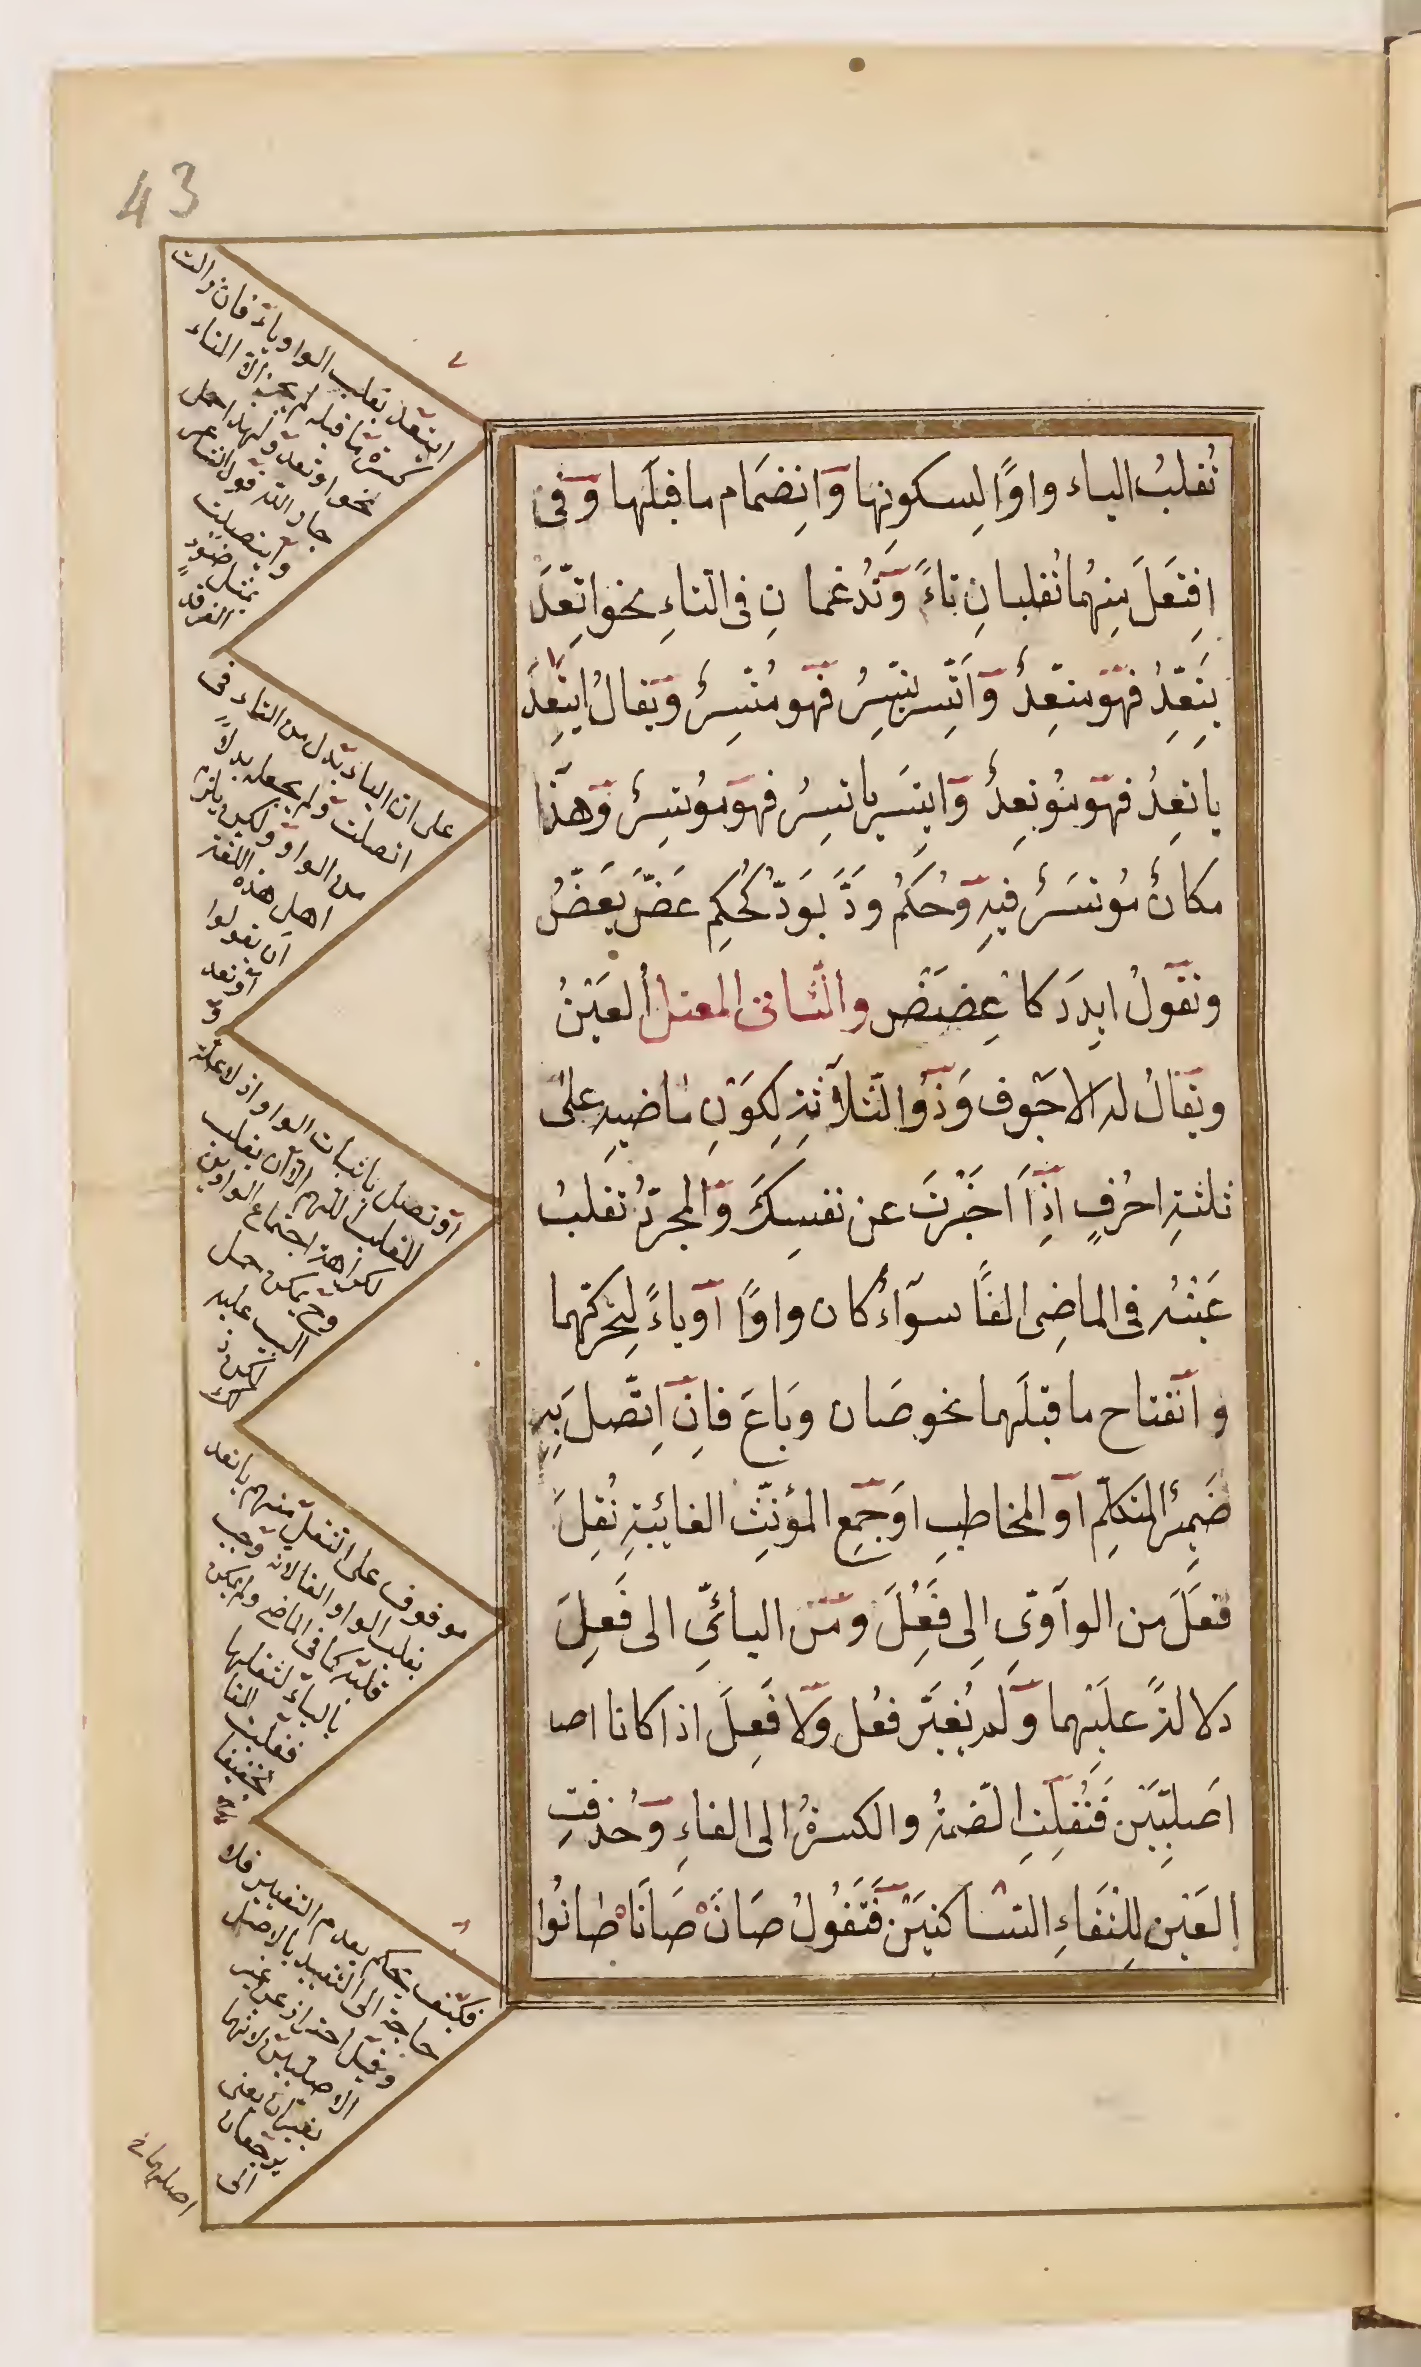 43
تُقلَبُ الياء واوًا لِسكونِها وَانِضمَام ما قبلَها وَفى
اِفتَعَلَ مِنهُما تُقلبانِ تاءً وَتُدغما نِ فى التاءِ نحو اتّعَدَ
يتَّعِدُ فهوَ متّعِدٌ وَاتّسر يتّسِرُ فهو مُتّسِرٌ وَيقالُ ايتعدَ
ياتعِدُ فهوَ مُوتعِدٌ وَايتسَر ياتسِرُ فهوَ مُوتسِرٌ وَهذا
مكانٌ مُوتسَرٌ فيهِ وَحُكمُ ودَّ يَوَدّ كحُكمِ عَضَّ يَعَضُّ
وتقولُ ايدَد كا عِضَض والثّانى المعتل العَيْنُ
ويقالُ له الاجوَف وَذو الثلاثةِ لِكَوْنِ ماضيهِ على
ثلثةِ احرُفٍ اِذا اخبَرْتَ عن نفسِكَ وَالمجرّدُ تقلبُ
عَينُه فى الماضِى الفًا سوآءٌ كان واوًا اَوياءً لِتحرّكهما
وانفتاح ما قبلَهما نحو صَان وبَاعَ فاِن اِتّصل بِه
ضَمِيرُ المتكلّمِ اَو المخاطبِ اوجَمعِ المؤنّثِ الغائبةِ نُقِلَ
فعَلَ من الواوىّ اِلى فَعُلَ ومن اليائىّ الى فَعِلَ
دلالةً علَيهما وَلم يُغيَّر فعُل وَلا فَعِلَ اذا كانا اصا
اَصَليّيَن فَنُقِلتِ الضّمةُ والكسرةُ الى الفاءِ وَحُذفتِ
العَين لِالتقَاءِ السّاكنيَن فَتَقُولُ صَانَ صَانَا صَانُوا
ايتعد بقلب الواو ياءً فان زالت
كسرة ما قبله لم يجز الا التاء
نحو اوتعد ولهذا حمل
جار الله قول الشاعر
وايتصلت
بمثل ضوءِ
الفرقدِ
على ان الياء بدل من التاء فى
اتصلت ولم يجعله بدلاً
من الواو ولكن يلزم
اهل هذه اللغة
ان يقولوا
اوتعد
و
اوتصل باثبات الواو اذ لا علة
للقلب اللهم الا ان يقلب
لكراهة اجتماع الواوين
وح يمكن حمل
البيت عليه
موقوف على النقل منهم ياتعد
بقلب الواو الفا لانه وجب
قلبه كما فى الماضى ولم يمكن
بالياء لثقلها
فقلبت الفا
تخفيفا
فكيف يحكم بعدم التغيير فلا
حاجة الى التقييد بالاصل
وقيل احترز عن غير
الاصليين لانهما
يغيران يعنى
يرجعان
الى
اصلهما